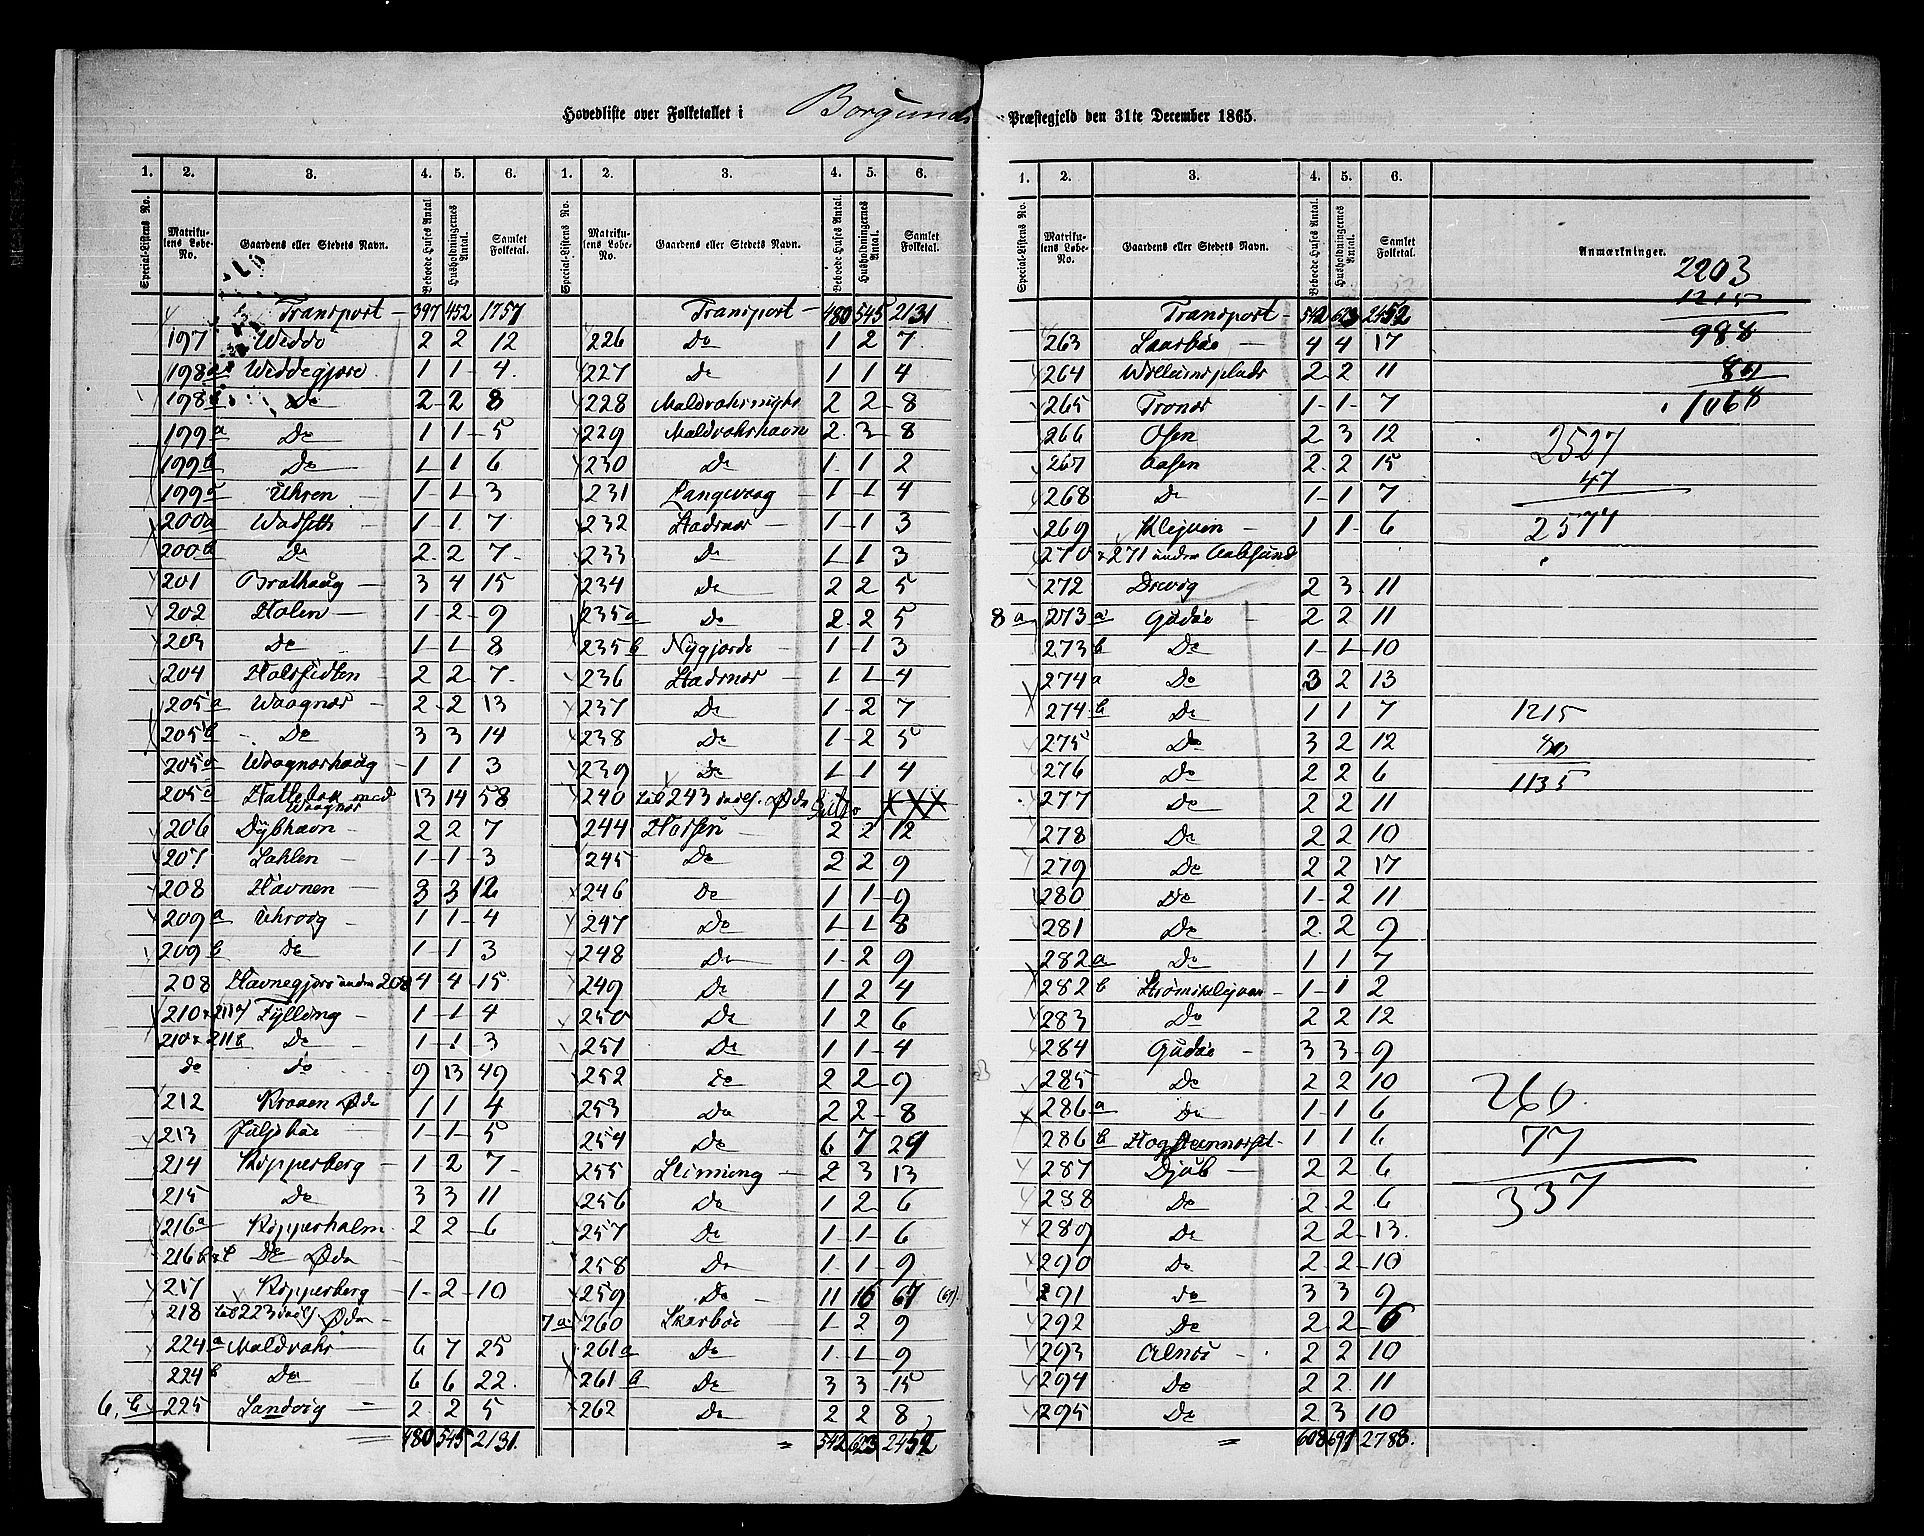 Hovedliste over Folketallet i Borgunds Præstegjeld den 31te December 1865.
1. 2. 3. 4. 5. 6. 1. 2. 3. 4. 5. 6.
Special-Listens No. Matrikulens Løbe-No. Gaardens eller Stedets Navn. Beboede Huses Antal. Husholdningernes Antal. Samlet Folketal. Special-Listens No. Matrikulens Løbe-No. Gaardens eller Stedets Navn. Beboede Huses Antal. Husholdningernes Antal. Samlet Folketal.
Transport 397 452 1757
197 Weddo 2 2 12
198a Weddegjere 1 1 4
198b Do 2 2 8
199a Do 1 1 5
199b Do 1 1 6
199c Uhren 1 1 3
200a Wadseth 1 1 7
200b Do 2 2 7
201 Brathaug 3 4 15
202 Holen 1 2 9
203 Do 1 1 8
204 Holsfidlen 2 2 7
205a Waagnæs 2 2 13
205b Do 3 3 14
205c Waagneshaug 1 1 3
205d Hattebak med Waagnæs 13 14 58
206 Dybhavn 2 2 7
207 Sahlen 1 1 3
208 Havnen 3 3 12
209a Uhrvaag 1 1 4
209b Do 1 1 3
208 Havnegjere under 208 4 4 15
210 & 211a Fylling 1 1 4
210 & 211b Do 1 1 3
do do 9 13 49
212 Kraaen Øde 1 1 4
213 Puljebøe 1 1 5
214 Kopperberg 1 2 7
215 Do 3 3 11
216a Kopperholm 2 2 6
216b&c Do Øde
217 Kopperberg 1 2 10
218 til 223 incl. Øde
224a Maldvahr 6 7 25
224b Do 6 6 22
6.b 225 Sandvig 2 2 5
480 545 2131.
Transport 480 545 2131
226 Do 1 2 7
227 Do 1 1 4
228 Maldvahrmyhr 2 2 8
229 Maldvahrhavn 2 3 8
230 Do 1 1 2
231 Langevaag 1 1 4
232 Stadsnæs 1 1 3
233 Do 1 1 3
234 Do 2 2 5
235a Do 2 2 5
235b Nygjerde 1 1 3
236 Stadsnæs 1 1 4
237 Do 1 2 7
238 Do 1 2 5
239 Do 1 1 4
240 til 243 incl. Øde
244 Hassen 2 2 12
245 Do 2 2 9
246 Do 1 1 9
247 Do 1 1 8
248 Do 1 2 9
249 Do 1 2 4
250 Do 1 2 6
251 Do 1 1 4
252 Do 2 2 9
253 Do 2 2 8
254 Do 6 7 29
255 Slinning 2 3 13
256 Do 1 2 6
257 Do 1 1 6
258 Do 1 1 9
259 Do 11 16 67 (67).
7a 260 Skarbøe 1 2 9
261a Do 1 1 9
261b Do 3 3 15
262 Do 2 2 8
542 623 2452
1. 2. 3. 4. 5. 6.
Special-Listens No. Matrikulens Løbe-No. Gaardens eller Stedets Navn. Beboede Huses Antal. Husholdningernes Antal. Samlet Folketal. Anmærkninger.
Transport 542 623 2452
263 Skarbøe 4 4 17
264 Willumsplads 2 2 11
265 Tronæs 1 1 7
266 Osen 2 3 12
267 Aasen 2 2 15
268 Do 1 1 7
269 Klejven 1 1 6
270 & 271 under Aalesund
272 Drevig 2 3 11
8a 273a Gudøe 2 2 11
273b Do 1 1 10
274a Do 3 2 13
274b Do 1 1 7
275 Do 3 2 12
276 Do 2 2 6
277 Do 2 2 11
278 Do 2 2 10
279 Do 2 2 17
280 Do 1 2 11
281 Do 2 2 9
282a Do 1 1 7
282b Strømsklejven 1 1 2
283 Do 2 2 12
284 Gudøe 3 3 9
285 Do 2 2 10
286a Do 1 1 6
286b 1 1 6
287 Djub 2 2 6
288 Do 2 2 6
289 Do 2 2 13
290 Do 2 2 10
291 do 3 3 9
292 Do 2 2 6
293 Alnæs 2 2 10
294 Do 2 2 11
295 Do 2 3 10
608 691 2788.
2203
1215
988
80
1068
2527
47
2577
1215
80
1135
260
77
337